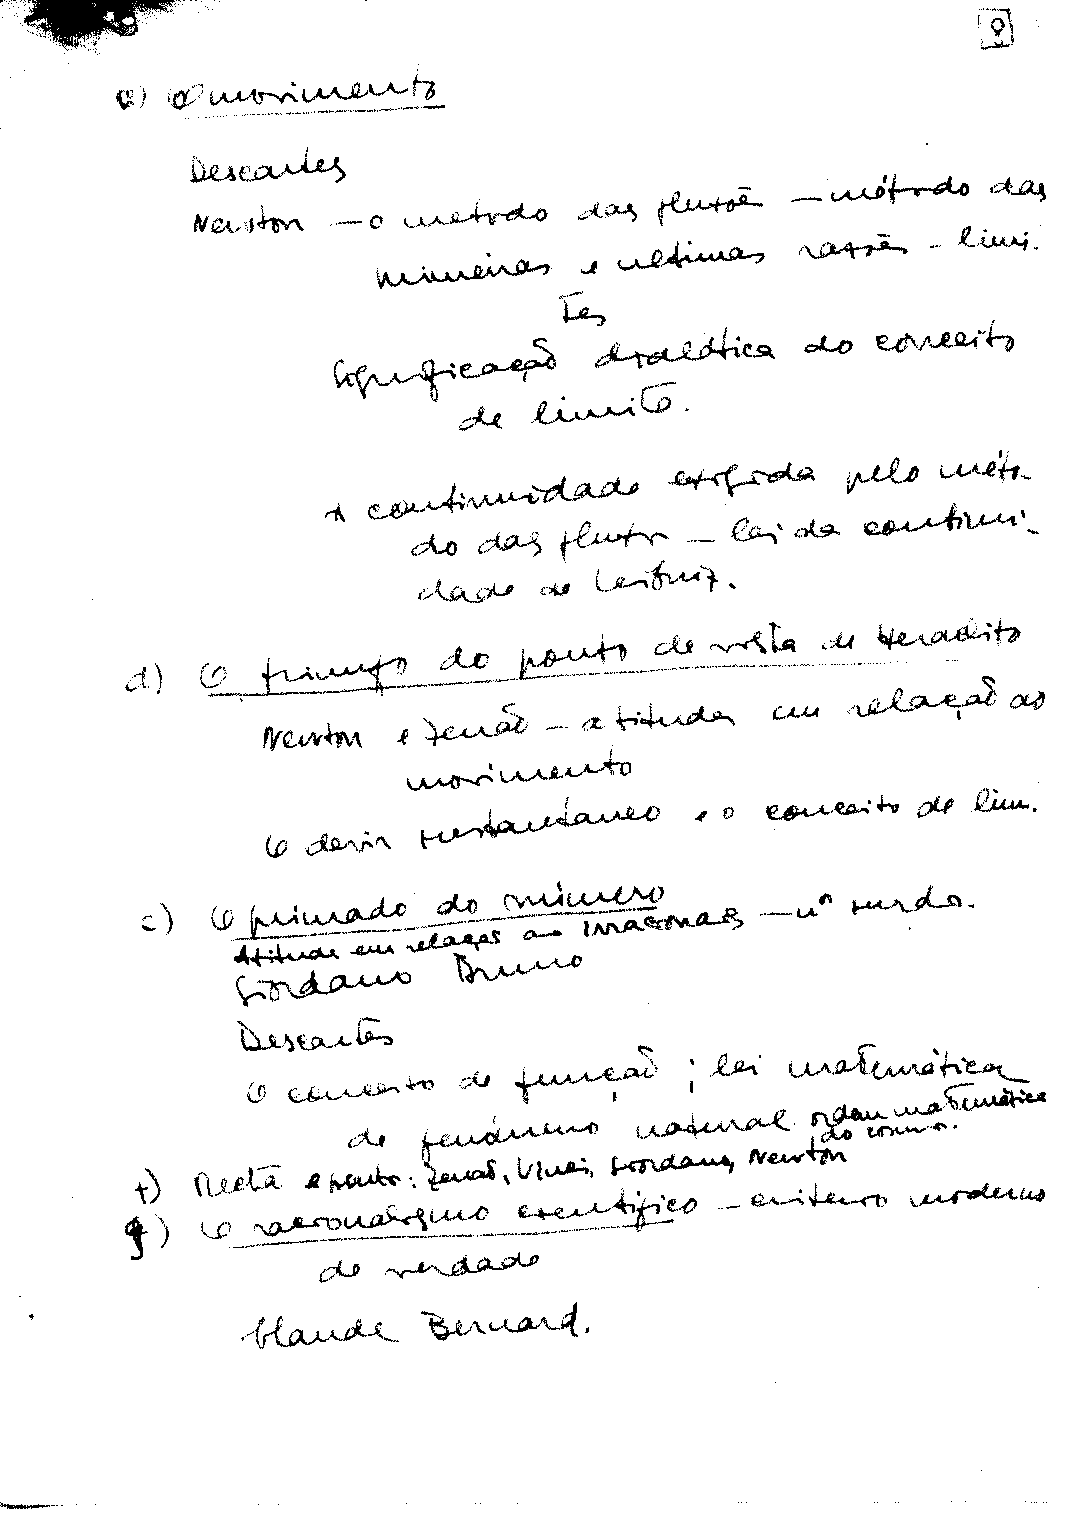 9
c) O movimento
Descartes
Newton — o metodo das fluxões — método das
primeiras e ultimas razões — limi-
tes
Significação dialética do conceito
de limite.
A continuidade exigida pelo méto-
do das fluxões — lei da continui-
dade de Leibniz.
d) O triunfo do ponto de vista de Heraclito
Newton e Zenão — atitudes em relação ao
movimento
O devir instantâneo e o conceito de lim.
e) O primado do número
Atitude em relação ao irracionais — nº surdo.
Giordano Bruno
Descartes
O conceito de função; lei matemática
de fenómeno natural ordem matemática
do cosmos.
f) Recta e ponto: Zenão, Vinci, Giordano, Newton
g) O racionalismo científico — critério moderno
de verdade
Claude Bernard.